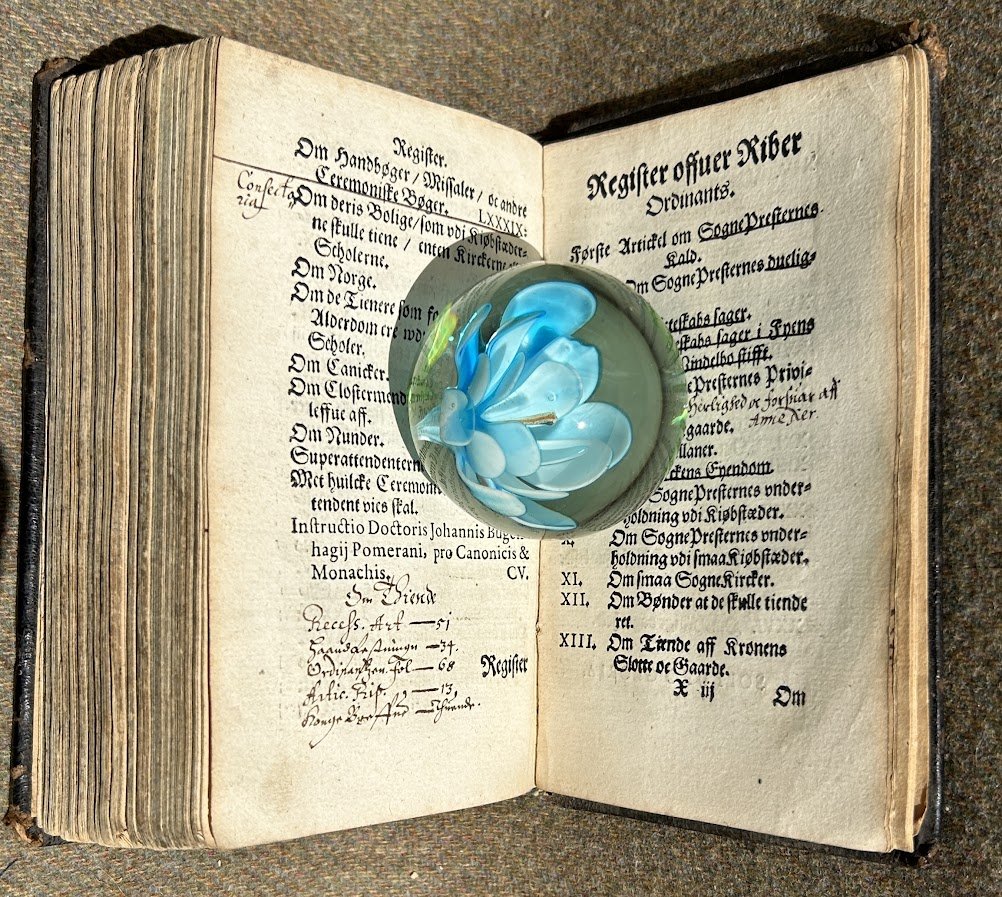 Register.
Om Handbøger / Missaler / oc andre
Ceremoniske Bøger. LXXXIX.
Consecta
riaf
Om deris Bolige / som vdi Kiøbstæder-
ne skulle tiene / enten Kirckerne
Scholerne.
Om Norge.
Om de Tienere som
Alderdom ere
Scholer.
Om Canicker.
Om Closter
leffue aff.
Om Nunder.
Superattendentern
Met huilcke Ceremoni
tendent vies skal.
Instructio Doctoris Johannis Bugen
hagij Pomerani, pro Canonicis &
Monachis. CV.
Om Thiende
Recess. Art — 51
— 34.
Ordinantzen. fol — 68
Artic. Rip. — 13,
Register
Register offuer Riber
Ordinants.
Første Artickel om SognePresternes
Kald.
Om SognePresternes duelig-
teskabs sager.
eskabs sager i Fyens
Vindelbo stifft.
ePresternes Privi-
Herlighed oc
gaarde. Annexer.
llaner.
rckens Eyendom.
SognePresternes vnder-
holdning vdi Kiøbstæder.
Om SognePresternes vnder-
holdning vdi smaa Kiøbstæder.
XI. Om smaa SogneKircker.
XII. Om Bønder at de skulle tiende
ret.
XIII. Om Tiende aff Kronens
Slotte oc Gaarde.
X iij
Om